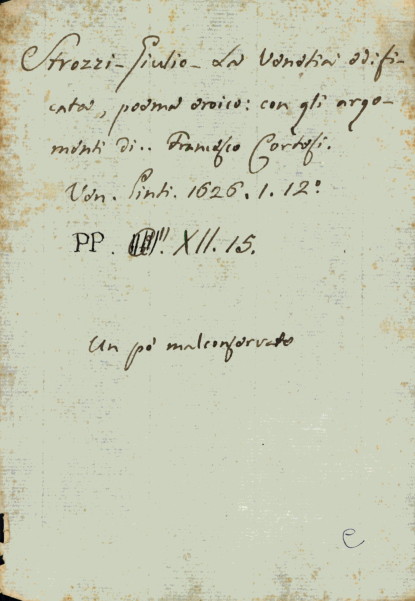 Strozzi - Giulio - La Venetia edifi-
cata, poema eroico: con gli argo-
menti di.. Francesco Cortesi.
Ven. Pinti. 1626. 1. 12°.
PP. XII. 15.
Un pò malconservato
e